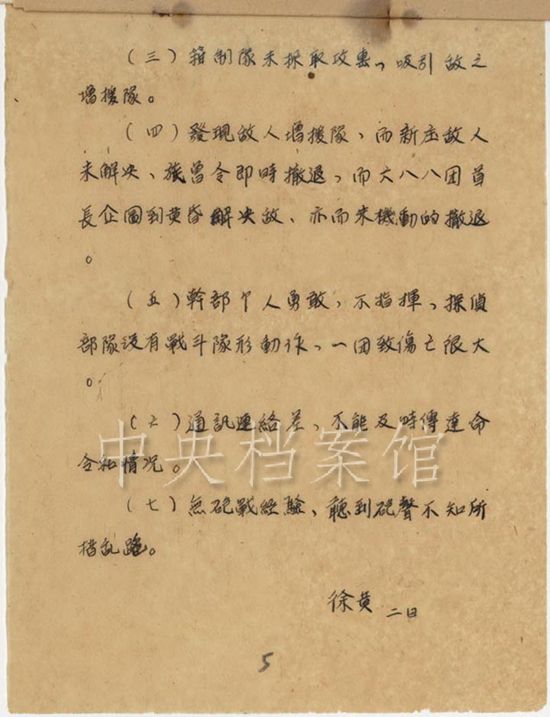 （三）箝制隊未採取攻惠、吸引敌之
增援隊。
（四）發現敌人增援隊、而新庄敌人
未解决、旅曾令即時撤退、而六八八团首
長企圖到黄昏解决敌、亦而未機動的撤退
。
（五）幹部个人勇敢、不指揮、探偵
部隊没有戰斗隊形動作、一团致傷亡很大
。
（六）通訊連絡差、不能及時傳達命
令和情况。
（七）無砲戰经驗、聽到砲聲不知所
措乱跑。
徐黄 二日
5
中央档案馆